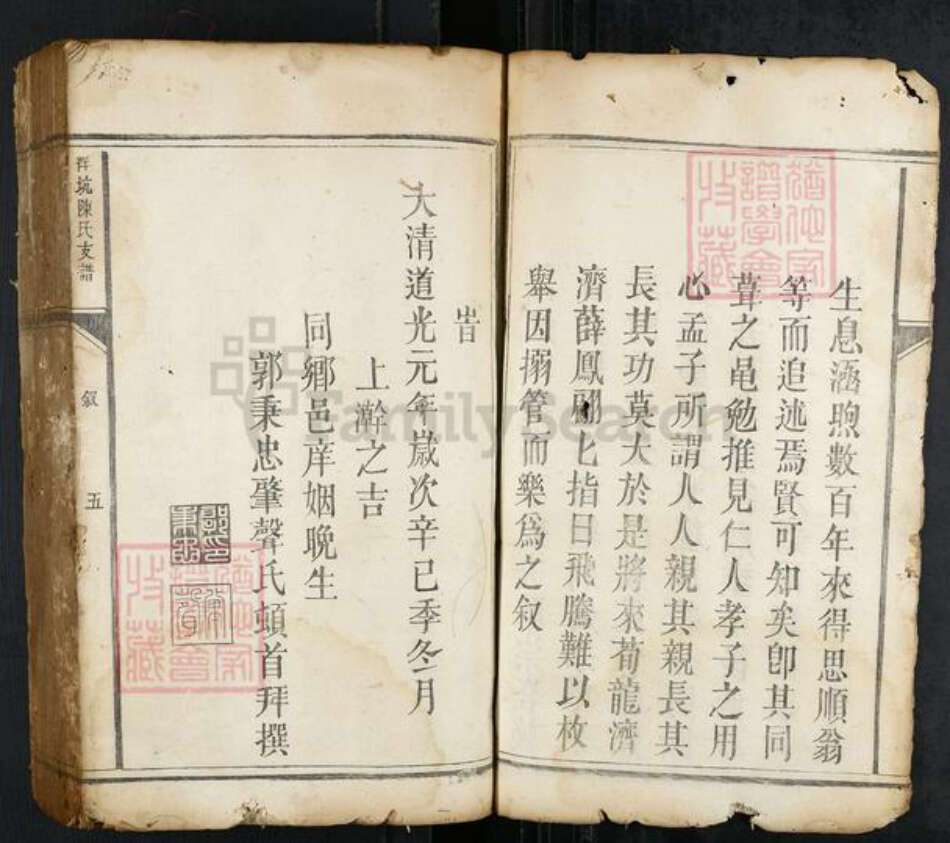 生息涵煦數百年來得思順翁
等而追述焉賢可知矣卽其同
葺之黽勉推見仁人孝子之用
心孟子所謂人人親其親長其
長其功莫大於是將來荀龍濟
濟薛鳳翩匕指日飛騰難以枚
舉因搦管而樂爲之叙
猶他家
譜學會
收藏
旹
大清道光元年嵗次辛巳季冬月
上澣之吉
同鄉邑庠姻晚生
郭秉忠肇聲氏頓首拜撰
猶他家
譜學會
收藏
坑陳氏支譜
叙
五
FamilySearch